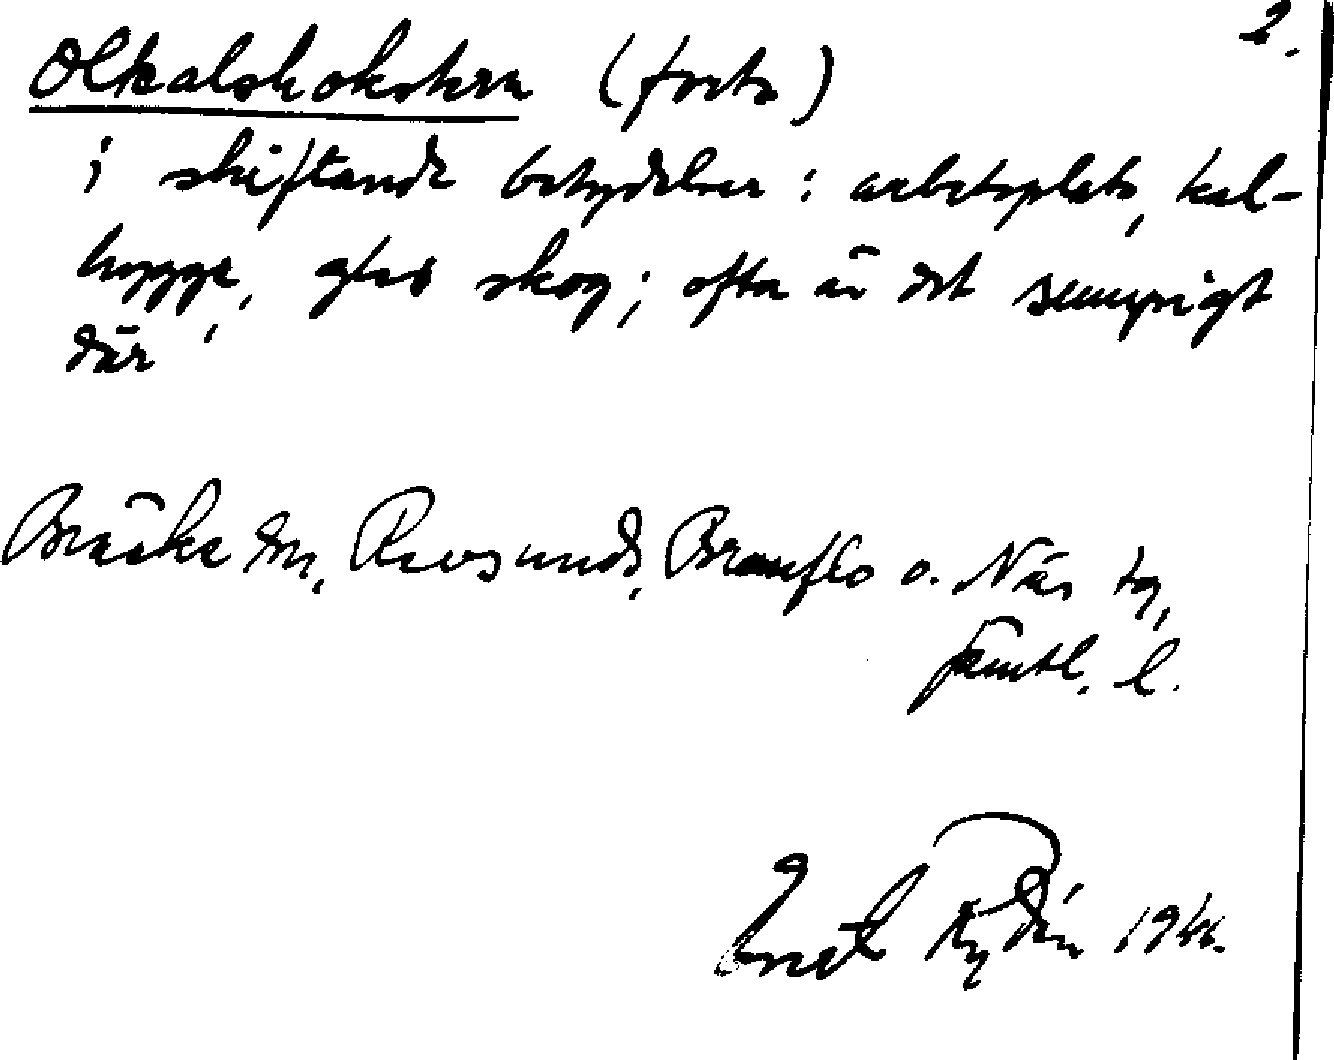 2.
Olkalskokstern (forts)
i skiftande betydelser: arbetsplats, kal-
hygge, gles skog; ofta är det sumprigt
där
Bräcke sn, Revsunds, Brunflo o. Näs tg,
Jämtl. l.
Ernst Rydén 1944.